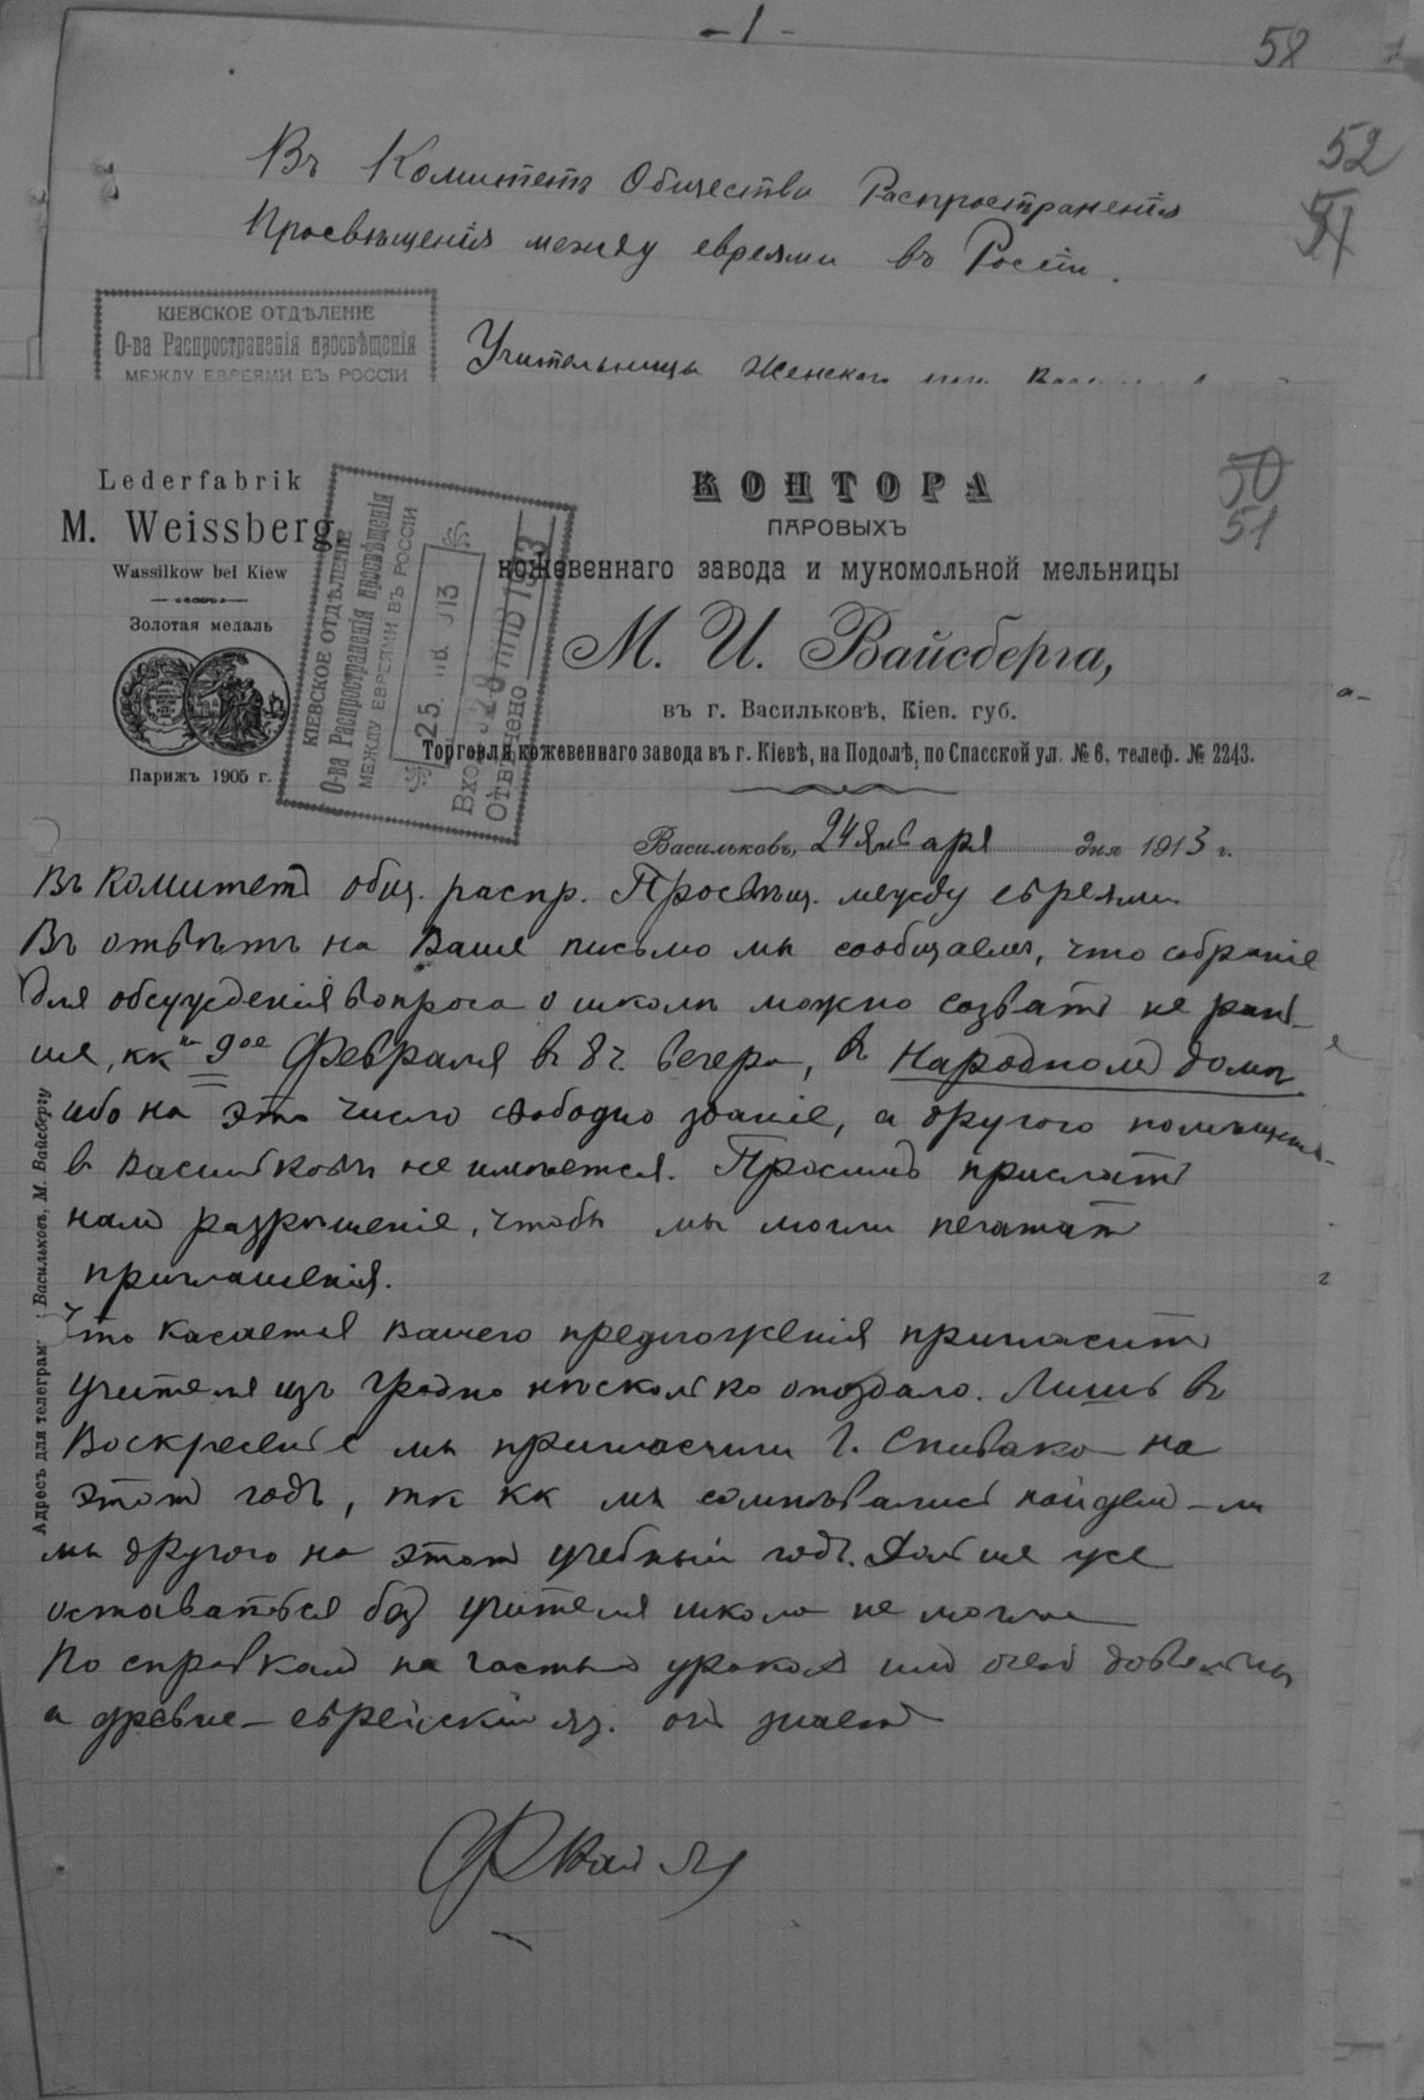 - 1 -
58
52
51
Въ Комитетъ Общества Распространенія
Просвѣщенія между евреями въ Россіи.
КІЕВСКОЕ ОТДѢЛЕНІЕ
О-ва Распространенія просвѣщенія
МЕЖДУ ЕВРЕЯМИ ВЪ РОССІИ
Учительницы Женского
50
51
Lederfabrik
M. Weissberg,
Wassilkow bei Kiew
Золотая медаль
Парижъ 1905 г.
КІЕВСКОЕ ОТДѢЛЕНІЕ
О-ва Распространенія просвѣщенія
МЕЖДУ ЕВРЕЯМИ ВЪ РОССІИ
25. 913
Отвѣчено
КОНТОРА
ПАРОВЫХЪ
кожевеннаго завода и мукомольной мельницы
М. И. Вайсберга,
въ г. Васильковѣ, Кіев. губ.
Торговля кожевеннаго завода въ г. Кіевѣ, на Подолѣ, по Спасской ул. № 6, телеф. № 2243.
Васильковъ, 24 Января дня 1913 г.
Въ Комитетъ общ. распр. Просвѣщ. между евреями
Въ отвѣтъ на Ваше письмо мы сообщаемъ, что собраніе
для обсужденія вопроса о школѣ можно созвать не рань-
ше, кк на 9ое Февраля въ 8 ч. вечера, въ Народномъ домѣ
ибо на это число свободно зданіе, а другого помѣщенія
въ Васильковѣ не имѣется. Просимъ прислать
намъ разрѣшеніе, чтобы мы могли печатать
приглашенія.
Что касается Вашего предложенія пригласить
учителя изъ Гродно нѣсколько опоздало. Лишь въ
Воскресенье мы пригласили г. Спивака на
этотъ годъ, тк кк мы сомнѣвались найдемъ-ли
мы другого на этотъ учебный годъ. Дольше уже
оставаться безъ учителя школа не могла
По справкамъ на частныхъ урокахъ имъ очень довольны
а древне-еврейскій яз. онъ знаетъ
Адресъ для телеграмъ: Васильковъ, М. Вайсбергу